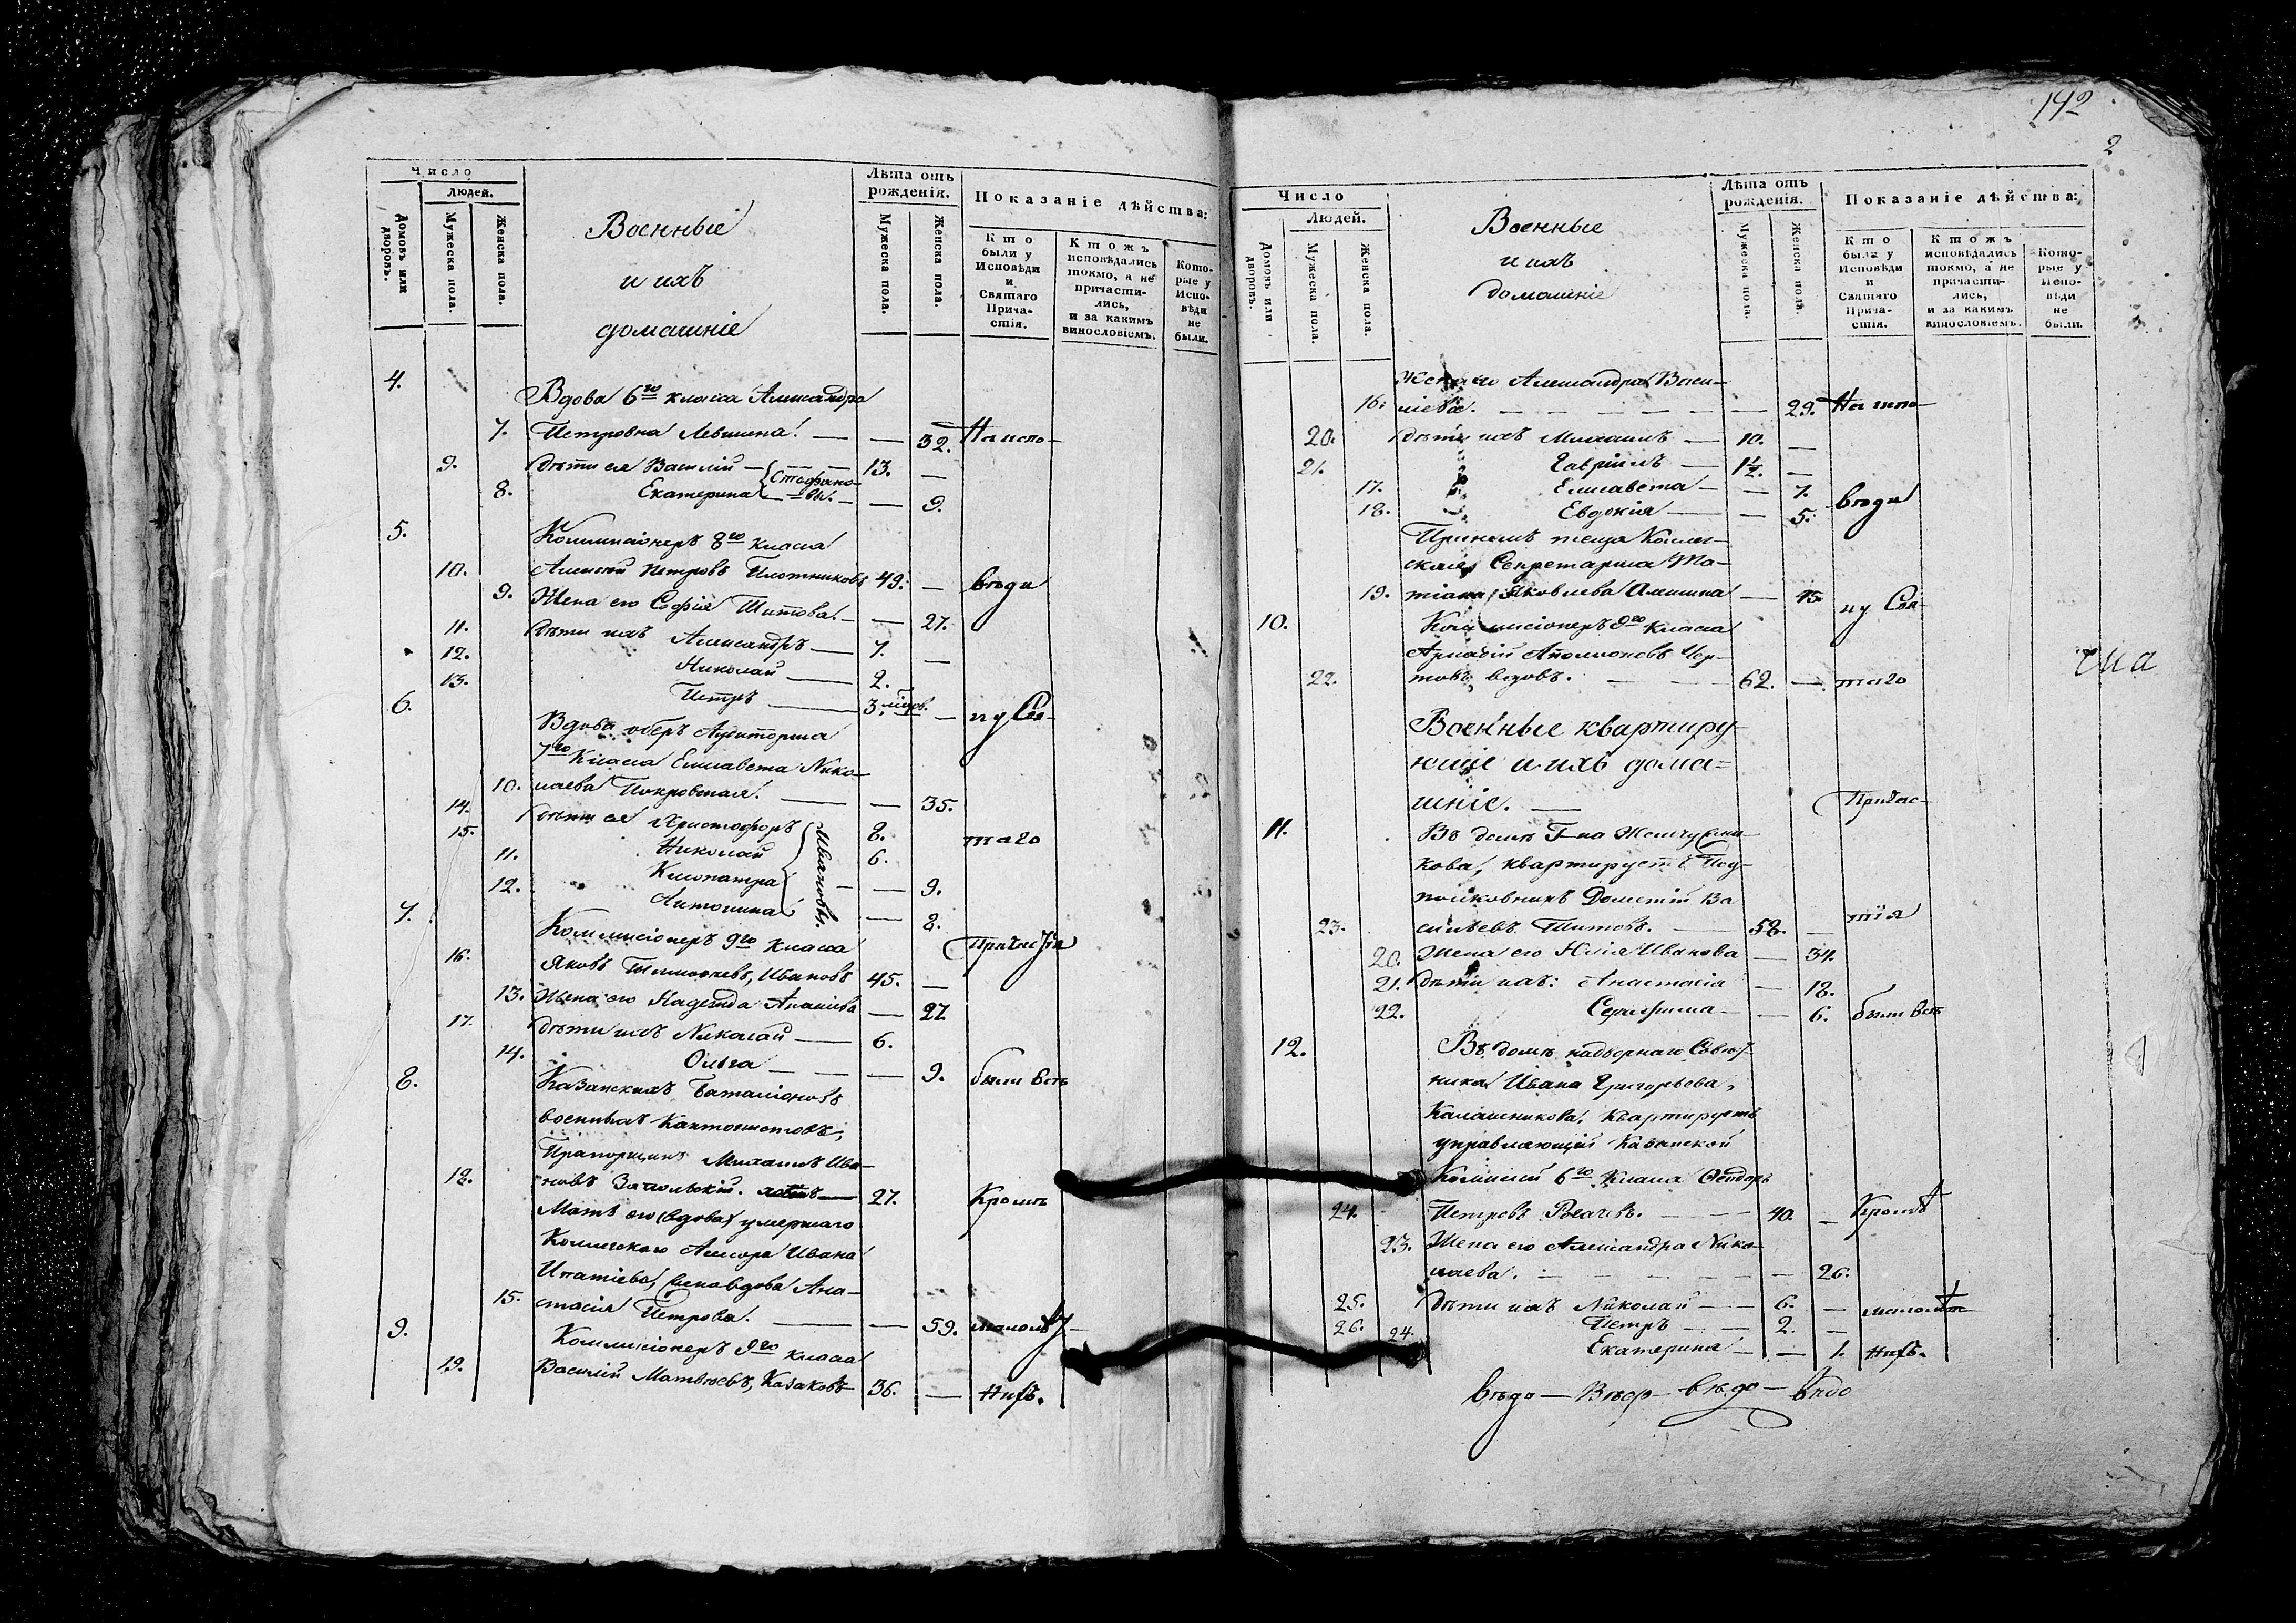 Число
людей.
Домовъ или дворовъ.
Мужеска пола.
Женска пола.
Военные
и ихъ
домашніе
Лѣта отъ рожденія.
Мужеска пола.
Женска пола.
Показаніе дѣйства:
Кто были у Исповѣди и Святаго Причастія.
Ктожъ исповѣдались токмо, а не причастились, и за какимъ винословіемъ.
Которые у Исповѣди не были.
4.
Вдова 6го класса Александра
7. Петровна Левшина. — — 32. На испо-
9. Дѣти ея Василій — 13. —
Стефано-
8. Екатерина вы. — — 9.
5. Коммисіонеръ 8го класса
10. Алексѣй Петровъ Плотниковъ 49. — вѣди
9. Жена его Софія Титова. — — 27.
11. Дѣти ихъ Александръ — 7.
12. Николай — 2. —
13. Петръ — 3. мѣс. — и у Свя-
6. Вдова оберъ Аудиторша
7го Класса Елисавета Нико-
10. лаева Покровская. — — 35.
14. Дѣти ея Христофоръ 8.
15. Николай 6. таго
11. Клеопатра — — 9.
12. Антонина — 8.
Ивановы.
7. Коммисіонеръ 9го класса Причастія
16. Яковъ Ивановъ 45. —
13. Жена его Надежда Ананіева — 27
17. Дѣти ихъ Николай — 6.
14. Ольга — — — 9. были всѣ
8. Казанскихъ Баталіоновъ
военныхъ Кантонистовъ,
Прапорщикъ Михаилъ Ива-
18. новъ — 27. Кромѣ
Мать его (вдова) умершаго
Коллежскаго Ассесора Ивана
Ипатіева, вдова Ана-
15. стасія Петрова. — — 59. малолѣт-
9. Коммисіонеръ 9го класса
19. Василій Матвѣевъ, Казаковъ 36. — нихъ.
142
2
Число
Людей.
Домовъ или дворовъ.
Мужеска пола.
Женска пола.
Военные
и ихъ
домашніе
Лѣта отъ рожденія.
Мужеска пола.
Женска пола.
Показаніе дѣйства:
Кто были у Исповѣди и Святаго Причастія.
Ктожъ исповѣдались токмо, а не причастились, и за какимъ винословіемъ.
Которые у Исповѣди не были.
Жена его Александра Васи-
16. ліева. — — — — — 29. На испо-
20. Дѣти ихъ Михаилъ — 10. —
21. Гавріилъ — 1½. —
17. Елисавета — — 7. вѣди
18. Евдокія — — 5.
теща Коллеж-
ская Секретарша Та-
19. тіана Яковлева — и у Свя-
10. Коммисіонеръ 9го класса
Аркадій Аполлоновъ Чер-
22. товъ, вдовъ. — — 62. — таго
Военные квартиру-
ющіе и ихъ дома-
шніе. — Причас-
11. Въ домѣ Г-на Жемчужни-
кова, квартируетъ Под-
полковникъ Дометій Ва
23. сильевъ Титовъ. — 58. — тія
20. Жена его Юлія Иванова — 34.
21. Дѣти ихъ: Анастасія — 18.
22. Серафима — — 6. были всѣ
12. Въ домѣ надворнаго Совѣт-
ника Ивана Григорьева,
Калашникова, Квартируетъ
управляющій Казанской
Комисіей 6го Класса Ѳеодоръ
24. Петровъ — — 40. — Кромѣ
23. Жена его Александра Нико-
лаева. — — — — — 26.
25. Дѣти ихъ Николай — 6. — малолѣт-
26. Петръ — 2. —
24. Екатерина — — 1. нихъ.